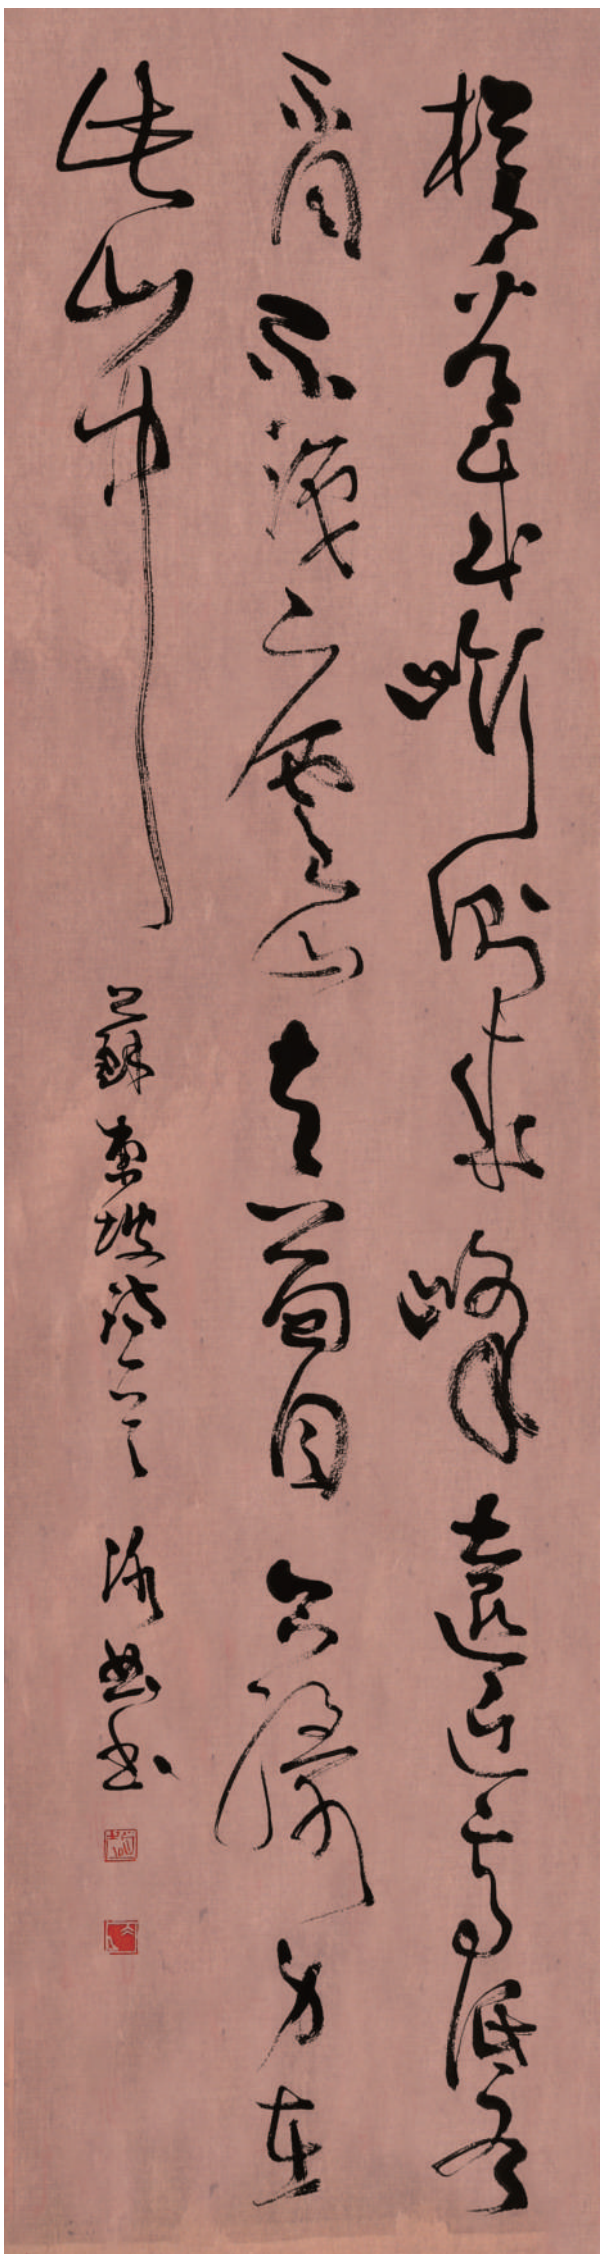 橫看成嶺側成峰遠近高低各
不同不識廬山真面目只緣身在
此山中
蘇東坡詩一首 書